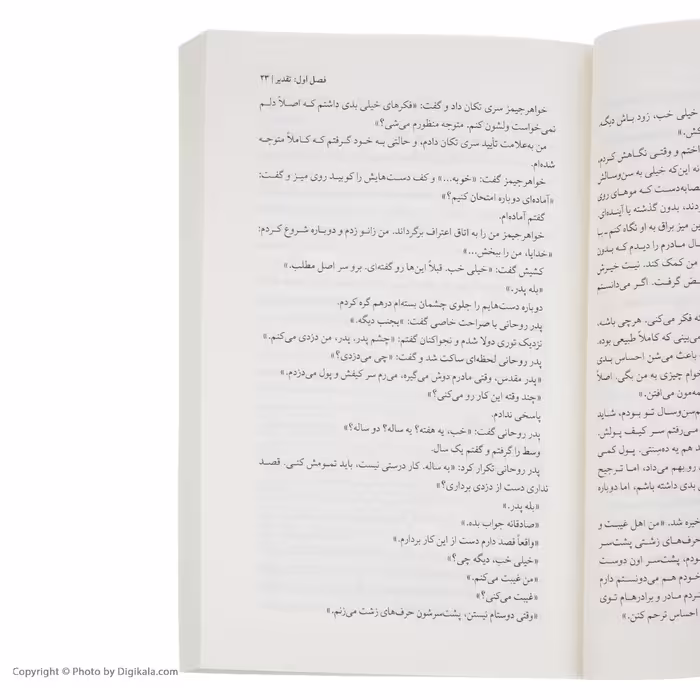 فصل اول: تقدیر | ۲۳
خواهرجیمز سری تکان داد و گفت: «فکرهای خیلی بدی داشتم که اصلاً دلم
نمی‌خواست ولشون کنم. متوجه منظورم می‌شی؟»
من به‌علامت تأیید سری تکان دادم، و حالتی به خود گرفتم که کاملاً متوجه
شده‌ام.
خواهرجیمز گفت: «خوبه...» و کف دست‌هایش را کوبید روی میز و گفت:
«آماده‌ای دوباره امتحان کنیم؟»
گفتم آماده‌ام.
خواهرجیمز من را به اتاق اعتراف برگرداند. من زانو زدم و دوباره شروع کردم:
«خدایا، من را ببخش...»
کشیش گفت: «خیلی خب. قبلاً این‌ها رو گفته‌ای. برو سر اصل مطلب.»
«بله پدر.»
دوباره دست‌هایم را جلوی چشمان بسته‌ام درهم گره کردم.
پدر روحانی با صراحت خاصی گفت: «بجنب دیگه.»
نزدیک توری دولا شدم و نجواکنان گفتم: «چشم پدر. پدر، من دزدی می‌کنم.»
پدر روحانی لحظه‌ای ساکت شد و گفت: «چی می‌دزدی؟»
«پدر مقدس، وقتی مادرم دوش می‌گیره، می‌رم سر کیفش و پول می‌دزدم.»
«چند وقته این کار رو می‌کنی؟»
پاسخی ندادم.
پدر روحانی گفت: «خب، یه هفته؟ یه ساله؟ دو ساله؟»
وسط را گرفتم و گفتم یک سال.
پدر روحانی تکرار کرد: «یه ساله. کار درستی نیست، باید تمومش کنی. قصد
نداری دست از دزدی برداری؟»
«بله پدر.»
«صادقانه جواب بده.»
«واقعاً قصد دارم دست از این کار بردارم.»
«خیلی خب، دیگه چی؟»
«من غیبت می‌کنم.»
«غیبت می‌کنی؟»
«وقتی دوستام نیستن، پشت‌سرشون حرف‌های زشت می‌زنم.»
خیلی خب، زود باش دیگه.
اختم و وقتی نگاهش کردم،
نه این‌که خیلی به سن‌وسالش
دست که موهای روی
ردند، بدون گذشته یا آینده‌ای
ین میز براق به او نگاه کنم، با
ال مادرم را دیدم که بدون
من کمک کند. نیت خیرش
گرفت. اگر می‌دانستم
که فکر می‌کنی. هرچی باشه،
می‌بینی که کاملاً طبیعی بوده.
باعث می‌شن احساس بدی
چیزی به من بگی. اصلاً
همه‌مون می‌افتن.»
م‌سن‌وسال تو بودم، شاید
می‌رفتم سر کیف پولش.
هم یه ده‌سنتی. پول کمی
رو بهم می‌داد، اما ترجیح
بدی داشته باشم، اما دوباره
خیره شد. «من اهل غیبت و
حرف‌های زشتی پشت‌سر
ودم، پشت‌سر اون دوست
خودم هم می‌دونستم دارم
مادر و برادرهام توی
احساس ترحم کنن.»
Copyright © Photo by Digikala.com